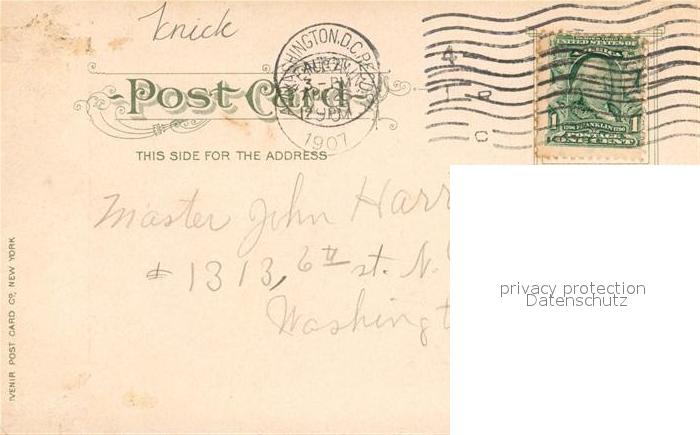 Knick
WASHINGTON, D.C. REC'D.
AUG 24
3 - PM
12 - PM
1907
4
1 - R
C
UNITED STATES OF AMERICA
1 1706 FRANKLIN 1790 1
POSTAGE
ONE CENT
Post Card
THIS SIDE FOR THE ADDRESS
Master John Harr
# 1313, 6th st. N.
Washingt
VENIR POST CARD CO., NEW YORK
privacy protection
Datenschutz